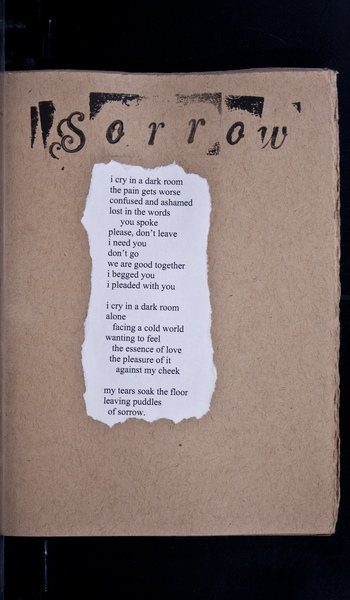 Sorrow
i cry in a dark room
the pain gets worse
confused and ashamed
lost in the words
you spoke
please, don't leave
i need you
don't go
we are good together
i begged you
i pleaded with you
i cry in a dark room
alone
facing a cold world
wanting to feel
the essence of love
the pleasure of it
against my cheek
my tears soak the floor
leaving puddles
of sorrow.